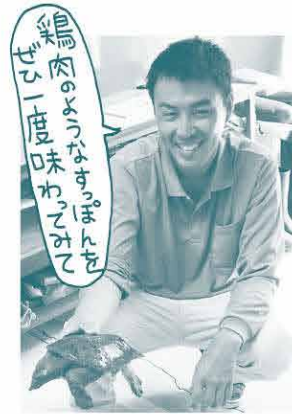 鶏肉のようなすっぽんを
ぜひ一度味わってみて